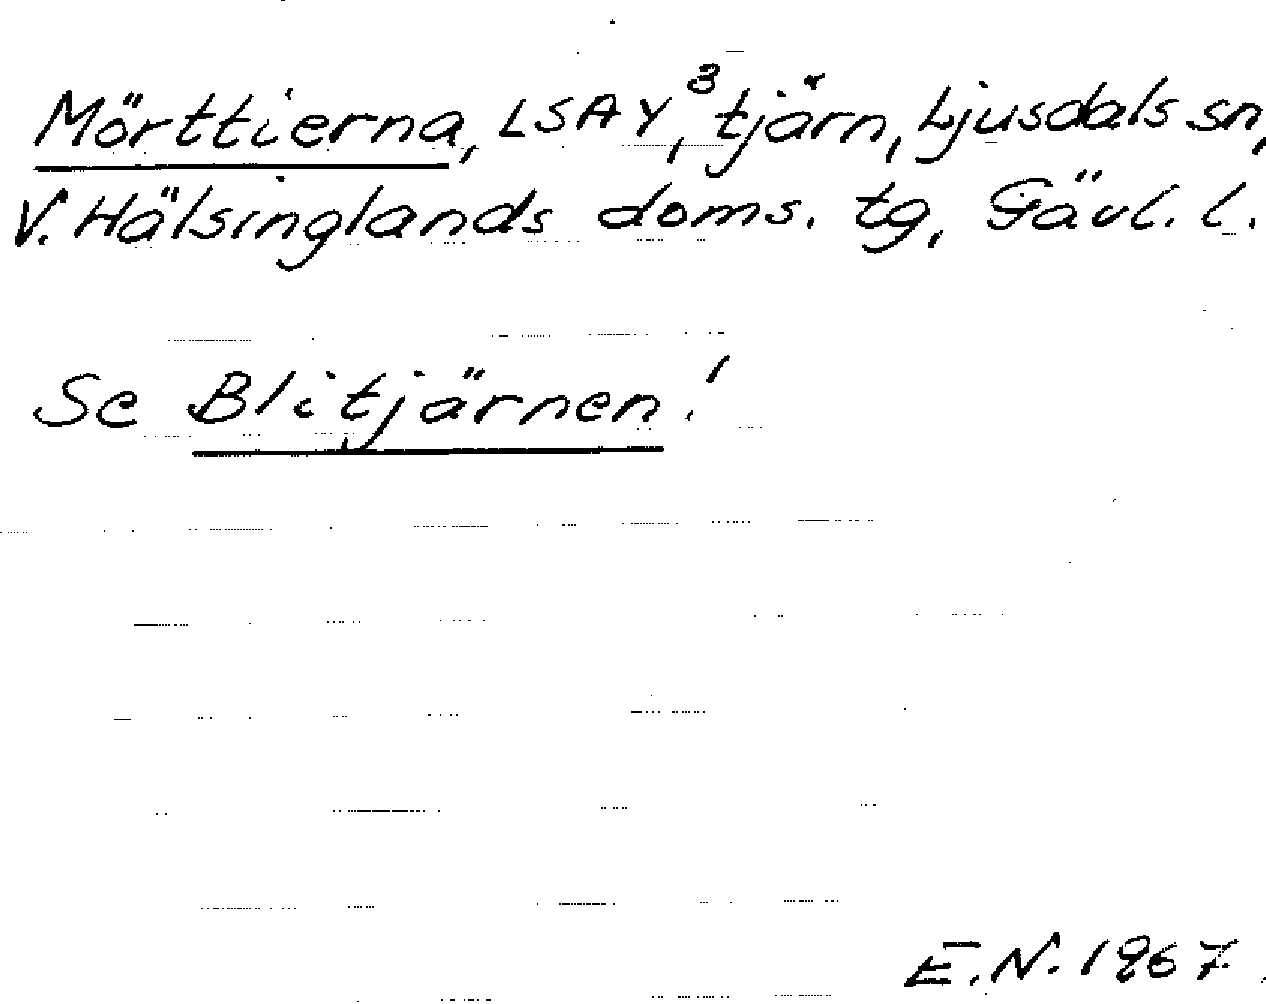 Mörttierna, LSAY³, tjärn, Ljusdals sn,
V. Hälsinglands doms. tg, Gävl. l.
Se Blitjärnen!
E.N. 1967